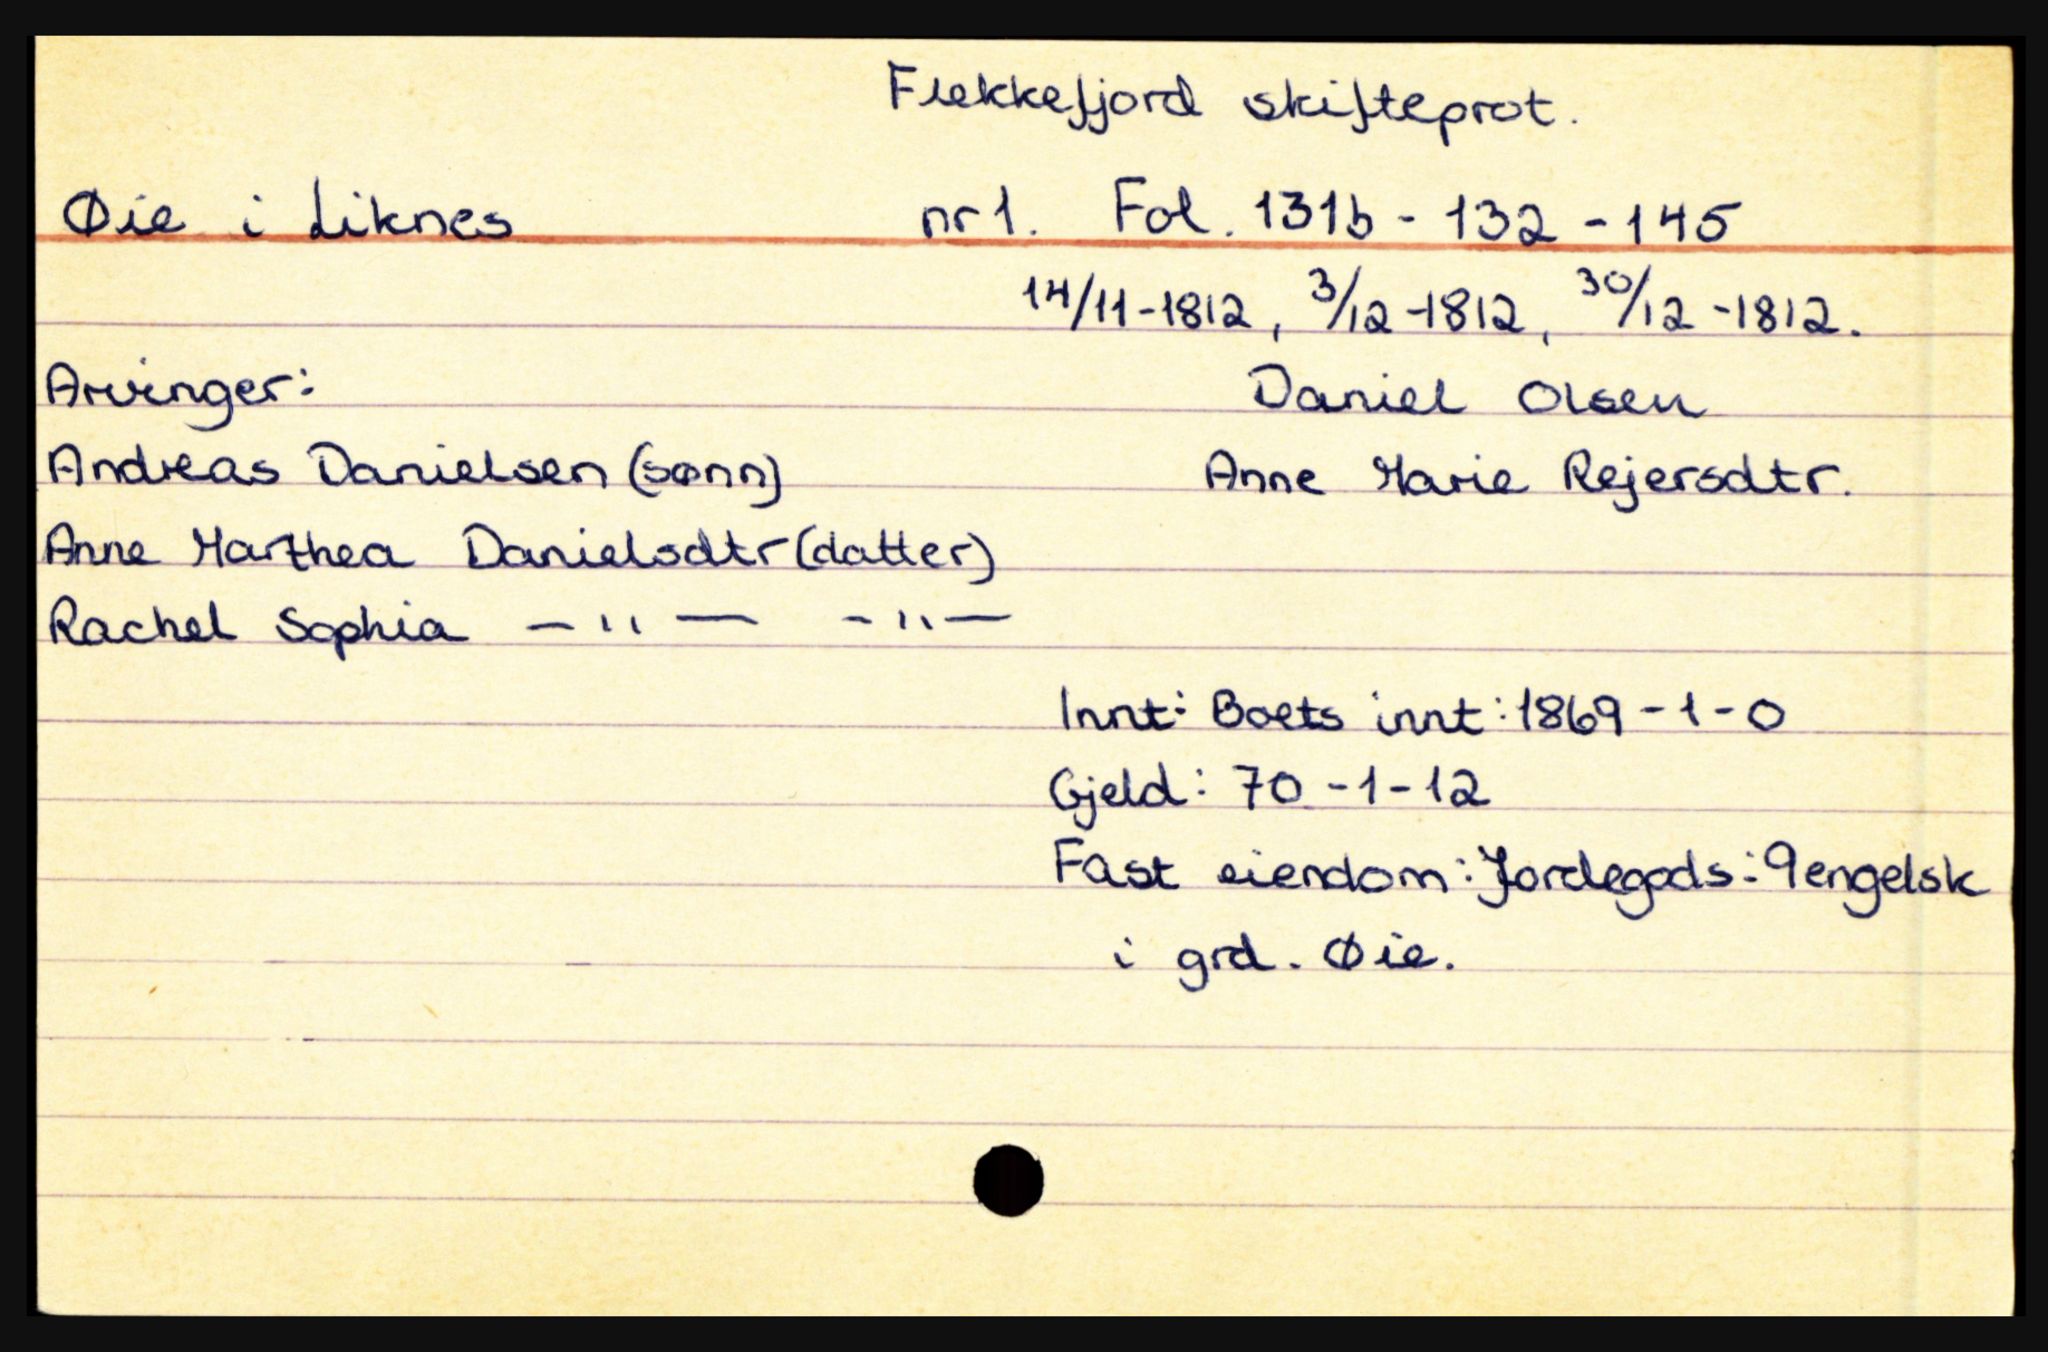 Flekkefjord skifteprot.
Øie i Liknes nr 1. Fol. 131b - 132 - 145
14/11-1812, 3/12-1812, 30/12-1812.
Arvinger: Daniel Olsen
Andreas Danielsen (sønn) Anne Marie Rejersdtr.
Anne Marthea Danielsdtr (datter)
Rachel Sophia — " — - " —
Innt: Boets innt: 1869 - 1 - 0
Gjeld: 70 - 1 - 12
Fast eiendom: Jordegods: 9 engelsk
i grd. Øie.